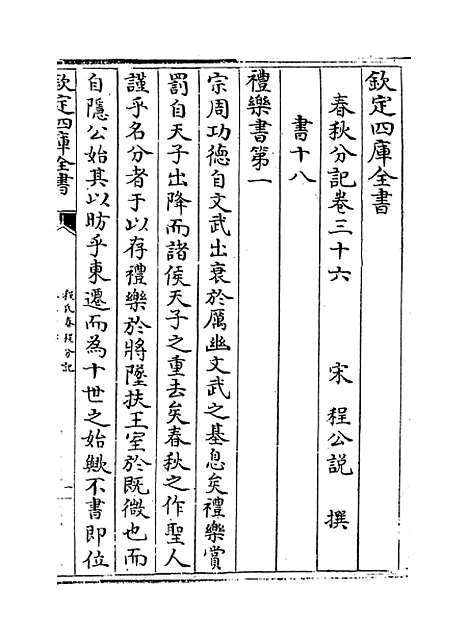 欽定四庫全書
春秋分記卷三十六　宋　程公說　撰
書十八
禮樂書第一
宗周功德自文武出衰於厲幽文武之基息矣禮樂賞
罰自天子出降而諸侯天子之重去矣春秋之作聖人
謹乎名分者于以存禮樂於將墜扶王室於既微也而
自隱公始其以昉乎東遷而為十世之始歟不書即位
欽定四庫全書
程氏春秋分記
一